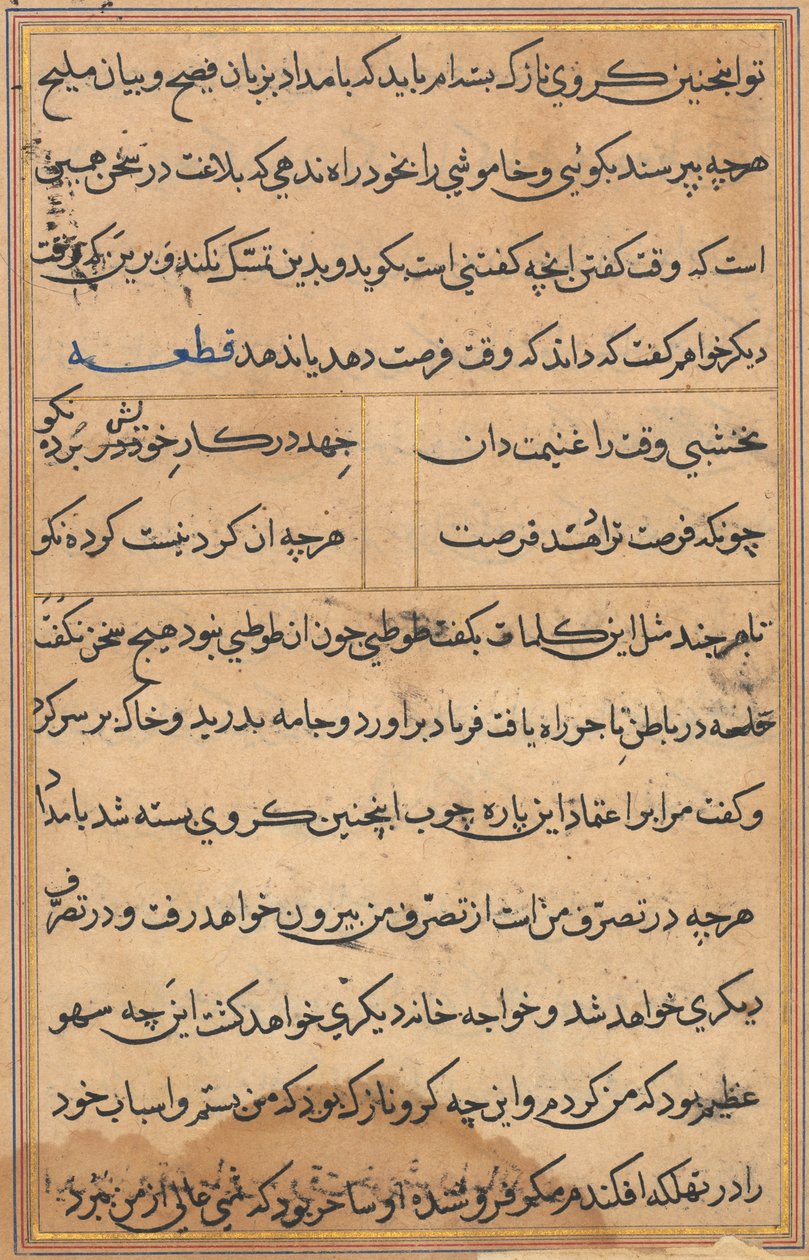 تو اینچنین کروی نازک بسته‌ام باید که بامداد بزبان فصیح و بیان ملیح
هرچه بپرسند بکوئیی و خاموشی را بخود راه ندهی که بلاغت در سخن همین
است که وقت کفتن انچه کفتنی است بکوید و بدین تمسّک نکند و برین که وقت
دیکر خواهم کفت که داند که وقت فرصت دهد یا ندهد قطعـــه
نخشبی وقت را غنیمت دان
جِهد در کارِ خویش برده نکو
چونکه فرصت ترا هست فرصت
هرچه ان کردنیست کرده نکو
تا هر چند مثل این کلمات بکفت طوطی چون ان طوطی نبود هیچ سخن نکفت
خلصه در باطنِ تاجر راه یافت فریاد براورد و جامه بدرید و خاک بر سر کرد
و کفت مرا بر اعتماد این پاره چوب اینچنین کروی بسته شد بامداد
هرچه در تصرّف من است از تصرّف من بیرون خواهد رفت و در تصرّف
دیکری خواهد شد و خواجه خانه دیکری خواهد کشت این چه سهو
عظیم بود که من کردم و این چه کرو نازک بود که من بستم و اسباب خود
را در تهلکه افکندم مکر فروشنده او ساحر بود که ثمنی عالی از من ببرد